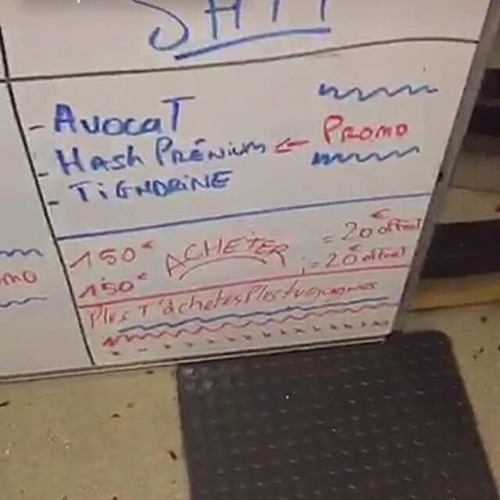 SHIT
- AvocaT
- Hash Prémium ← Promo
- TiGHDRINE
150€ ACHETER = 20€ offert
150€ = 20€ offert
Plus T'achetes Plus tu gagnes
mo